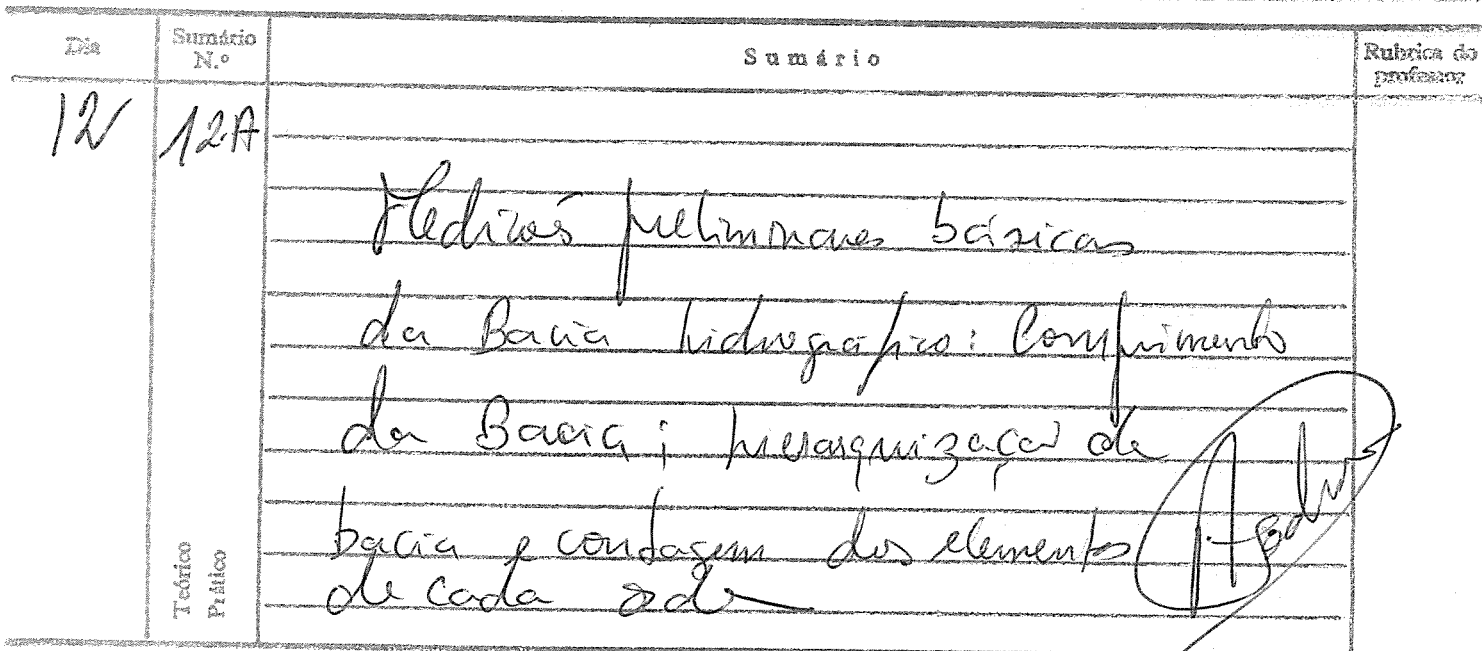 Dia Sumário N.º Sumário Rubrica do professor
12 12A
Medições preliminares básicas
da Bacia hidrográfica: Comprimento
da Bacia; hierarquização de
bacia e contagem dos elementos
de cada ordem
Teórico
Prático